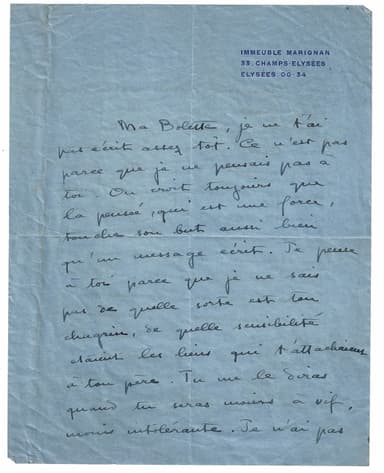 IMMEUBLE MARIGNAN
33 CHAMPS-ELYSÉES
ELYSÉES 00-34
Ma Bolette, je ne t'ai
pas écrit assez tôt. Ce n'est pas
parce que je ne pensais pas à
toi. On croit toujours que
la pensée, qui est une force,
touche son but aussi bien
qu'un message écrit. Je pense
à toi parce que je ne sais
pas de quelle sorte est ton
chagrin, de quelle sensibilité
étaient les liens qui t'attachaient
à ton père. Tu me le diras
quand tu seras moins à vif,
moins intolérante. Je n'ai pas